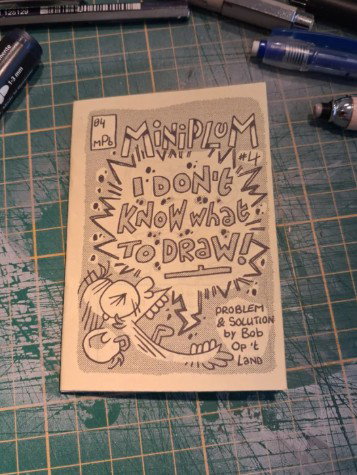 128129
1-3 mm
04
MP6
MINIPLUM
#4
I DON't
KNOW what
TO DRAW!
PROBLEM
& SOLUTION
by Bob
Op 't
LAND